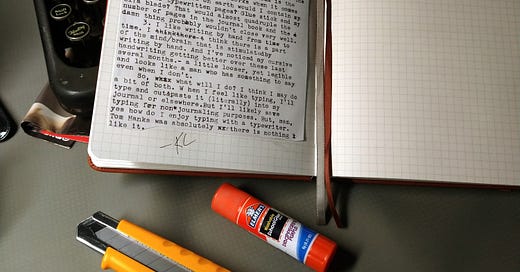 typewritten pages? Glue stick and
mark blade? That would almost guarantee the
number of pages in the journal book and the
damn thing probably wouldn't close very well.
3. I like writing by hand from time to
time. I think there is a part
of the mind/brain that is stimulated by
writing by hand. And I've noticed my cursive
handwriting getting better over these last
several months - a little looser, yet legible
and looks like a man who has something to say
even when I don't.
So, what will I do? I think I may do
a bit of both. When I feel like typing, I'll
type and cut&paste it (literally) into my
journal or elsewhere. But I'll likely save
typing for non-journaling purposes. But, man,
yes how do I enjoy typing with a typewriter.
Tom Hanks was absolutely xx:there is nothing
like it.
ELMER'S